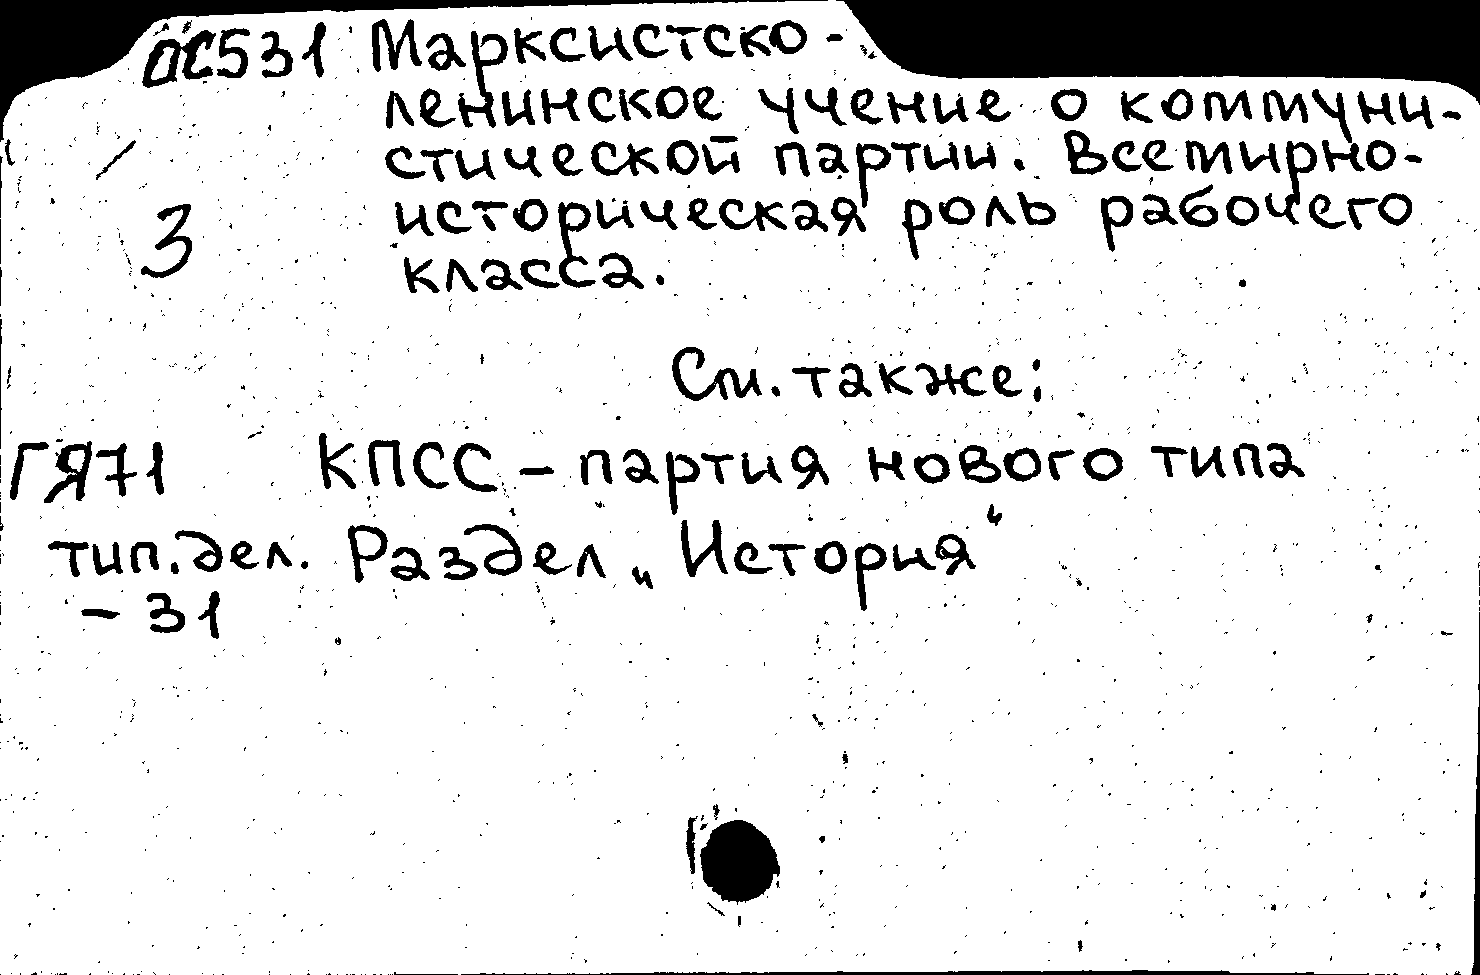 ДС531 Марксистско-
ленинское учение о коммуни-
стической партии. Всемирно-
3 историческая роль рабочего
класса.
См. также:
ГЯ71 КПСС – партия нового типа
тип.дел. Раздел „История“
– 31